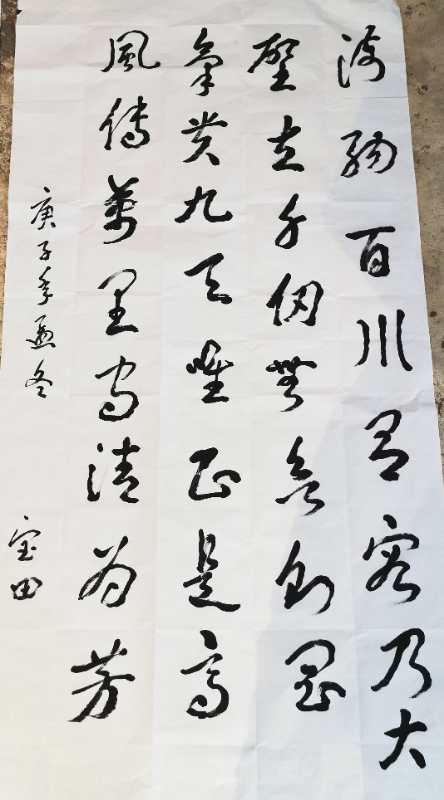 海納百川有容乃大
壁立千仞無欲則剛
氣贯九天唯正是高
風傳萬里守清為芳
庚子年冬
宝田